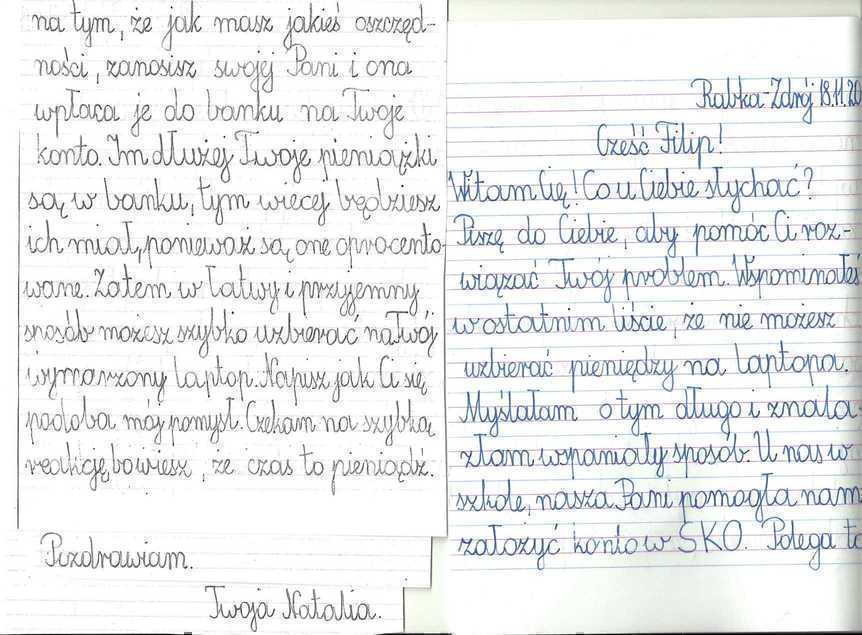 Rabka-Zdrój 18.11.20
Cześć Filip!
Witam Cię! Co u Ciebie słychać?
Piszę do Ciebie, aby pomóc Ci roz-
wiązać Twój problem. Wspominałeś
w ostatnim liście, że nie możesz
uzbierać pieniędzy na laptopa.
Myślałam o tym długo i znala-
złam wspaniały sposób. U nas w
szkole, nasza Pani pomogła nam
założyć konto w SKO. Polega to
na tym, że jak masz jakieś oszczęd-
ności, zanosisz swojej Pani i ona
wpłaca je do banku na Twoje
konto. Im dłużej Twoje pieniążki
są w banku, tym więcej będziesz
ich miał, ponieważ są one oprocento-
wane. Zatem w łatwy i przyjemny
sposób możesz szybko uzbierać na Twój
wymarzony laptop. Napisz jak Ci się
podoba mój pomysł. Czekam na szybką
reakcję, bo wiesz, że czas to pieniądz.
Pozdrawiam.
Twoja Natalia.